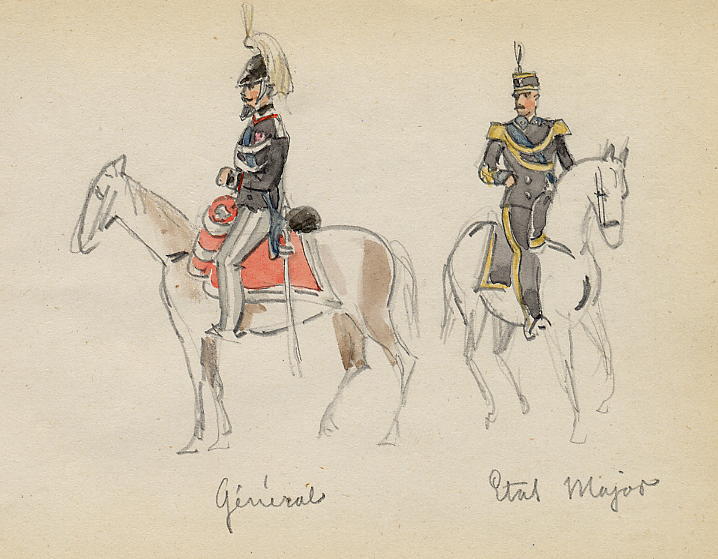 Général
Etat Major